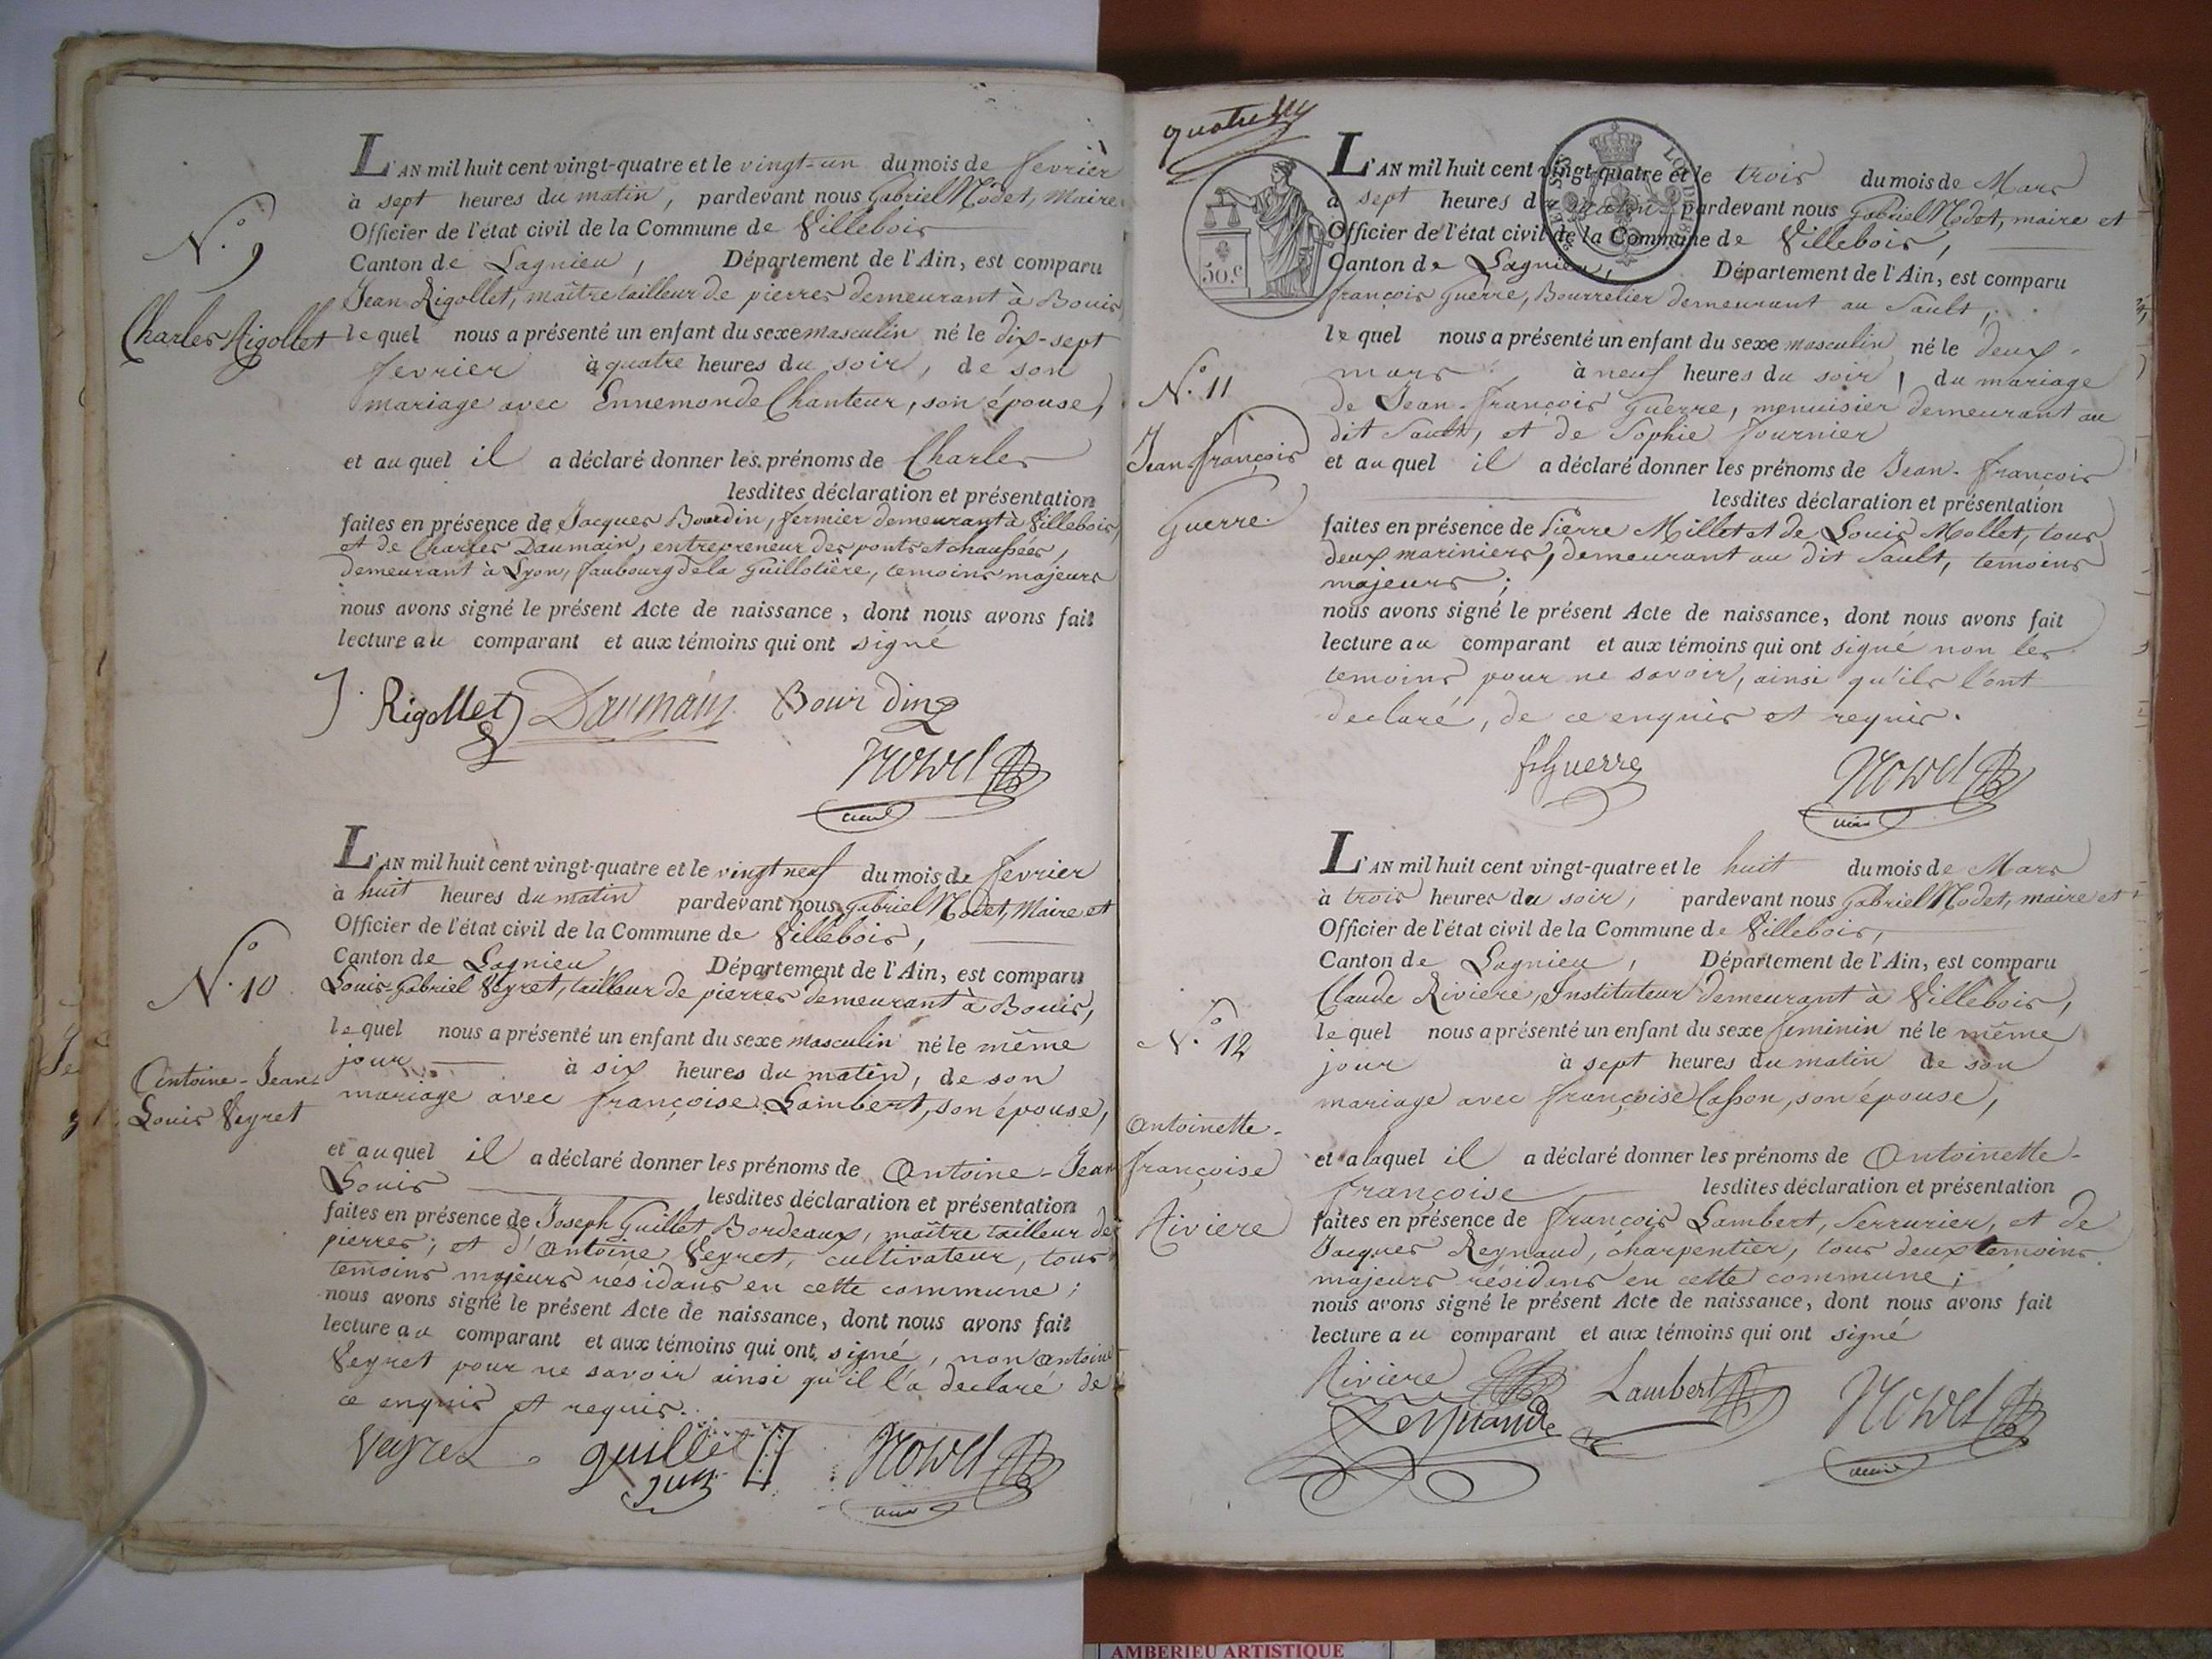 L'AN mil huit cent vingt-quatre et le vingt-un du mois de fevrier
à sept heures du matin, pardevant nous Gabriel Nodet, Maire
Officier de l'état civil de la Commune de Villebois
Canton de Lagnieu, Département de l'Ain, est comparu
Jean Rigollet, maître tailleur de pierres demeurant à Bouis
le quel nous a présenté un enfant du sexe masculin né le dix-sept
fevrier à quatre heures du soir, de son
mariage avec Ennemonde Chanteur, son épouse,
et au quel il a déclaré donner les prénoms de Charles
lesdites déclaration et présentation
faites en présence de Jacques Bourdin, fermier demeurant à Villebois,
et de Charles Daumain, entrepreneur des ponts et chaussées,
demeurant à Lyon, faubourg de la Guillotière, temoins majeurs
nous avons signé le présent Acte de naissance, dont nous avons fait
lecture au comparant et aux témoins qui ont signé
N.° 9
Charles Rigollet
J. Rigollet Daumain Bourding
maire
L'AN mil huit cent vingt-quatre et le vingt neuf du mois de fevrier
à huit heures du matin pardevant nous Gabriel Nodet, Maire et
Officier de l'état civil de la Commune de Villebois,
Canton de Lagnieu Département de l'Ain, est comparu
Louis-Gabriel Veyret, tailleur de pierres demeurant à Bouis,
le quel nous a présenté un enfant du sexe masculin né le même
jour à six heures du matin, de son
mariage avec françoise Lambert, son épouse,
et au quel il a déclaré donner les prénoms de Antoine-Jean
Louis lesdites déclaration et présentation
faites en présence de Joseph Guillet Bordeaux, maître tailleur de
pierres; et d'Antoine Veyret, cultivateur, tous
temoins majeurs résidans en cette commune;
nous avons signé le présent Acte de naissance, dont nous avons fait
lecture au comparant et aux témoins qui ont signé, non Antoine
Veyret pour ne savoir ainsi qu'il l'a declaré de
ce enquis et requis.
N.° 10
Antoine-Jean-
Louis Veyret
Veyret guillet
maire
quatre
50.c
L'AN mil huit cent vingt-quatre et le trois du mois de Mars
à sept heures du matin pardevant nous Gabriel Nodet, maire et
Officier de l'état civil de la Commune de Villebois,
Canton de Lagnieu, Département de l'Ain, est comparu
françois Guerre, Bourrelier demeurant au Sault,
le quel nous a présenté un enfant du sexe masculin né le deux
mars à neuf heures du soir, du mariage
de Jean-françois Guerre, menuisier demeurant au
dit Sault, et de Sophie fournier
et au quel il a déclaré donner les prénoms de Jean-françois
lesdites déclaration et présentation
faites en présence de Pierre Millet et de Louis Mollet, tous
deux mariniers, demeurant au dit Sault, temoins
majeurs;
nous avons signé le présent Acte de naissance, dont nous avons fait
lecture au comparant et aux témoins qui ont signé non les
temoins pour ne savoir, ainsi qu'ils l'ont
declaré, de ce enquis et requis.
N.° 11
Jean françois
Guerre.
fGuerre
maire
L'AN mil huit cent vingt-quatre et le huit du mois de Mars
à trois heures du soir, pardevant nous Gabriel Nodet, maire et
Officier de l'état civil de la Commune de Villebois,
Canton de Lagnieu, Département de l'Ain, est comparu
Claude Riviere, Instituteur demeurant à Villebois,
le quel nous a présenté un enfant du sexe feminin né le même
jour à sept heures du matin de son
mariage avec françoise Casson, son épouse,
et a laquel il a déclaré donner les prénoms de Antoinette-
françoise lesdites déclaration et présentation
faites en présence de françois Lambert, Serrurier, et de
Jacques Reynaud, charpentier, tous deux temoins
majeurs résidans en cette commune;
nous avons signé le présent Acte de naissance, dont nous avons fait
lecture au comparant et aux témoins qui ont signé
N.° 12
Antoinette-
françoise
Riviere
Riviere Lambert
maire
AMBERIEU ARTISTIQUE